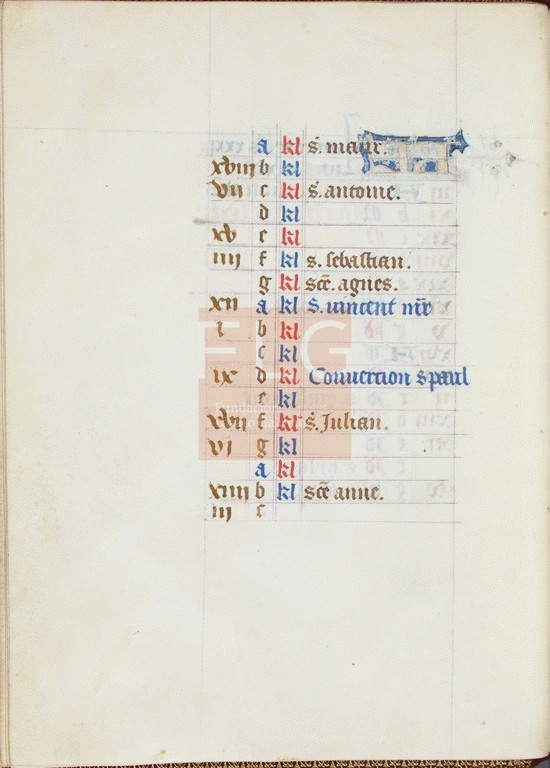 a kl s. maur.
xviii b kl
vii c kl s. antoine.
d kl
xv e kl
iiii f kl s. sebastian.
g kl sce. agnes.
xii a kl S. vincent mr
i b kl
c kl
ix d kl Convercion s paul
e kl
xvii f kl s. Julian.
vi g kl
a kl
xiiii b kl sce anne.
iii c
FLG